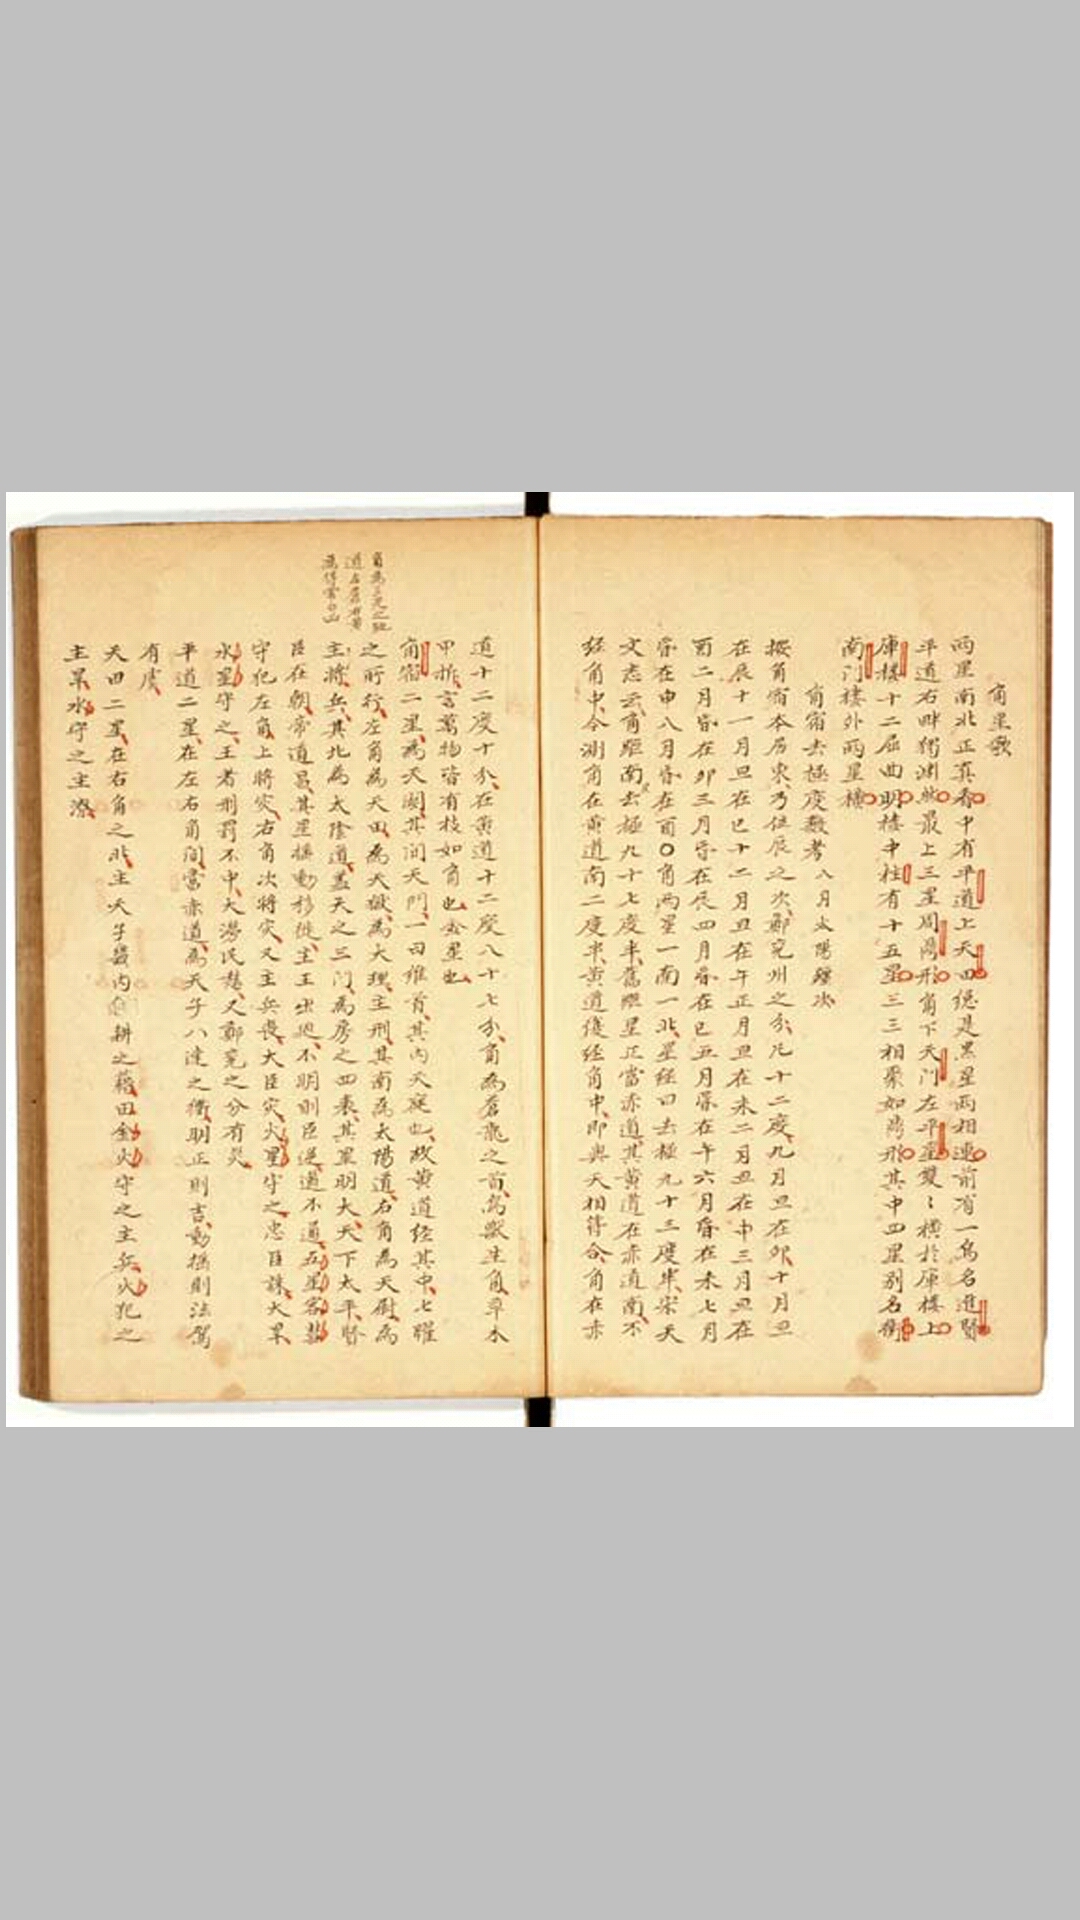 角星歌
兩星南北正直看中有平道上天田總是黑星兩相連前有一烏名進賢
平道右畔獨淵然最上三星周鼎形角下天門左平星雙〻橫於庫樓上
庫樓十二屈曲明樓中柱有十五星三三相聚如鼎形其中四星別名衡
南门樓外兩星橫
角宿去極度數考八月太陽躔次
按角宿本居東乃位辰之次鄭兗州之分凡十二度九月旦在卯十月旦
在辰十一月旦在巳十二月旦在午正月旦在未二月旦在申三月旦在
酉二月昏在卯三月昏在辰四月昏在巳五月昏在午六月昏在未七月
昏在申八月昏在酉〇角兩星一南一北星經曰去極九十三度半宋天
文志云角距南去極九十七度半舊經星正當赤道其黃道在赤道南不
經角中今測角在黃道南二度半黃道復經角中即與天相符合角在赤
道十二度十分在黃道十二度八十七分角為蒼龍之首鳥獸生角草木
甲拆言萬物皆有枝如角也金星也
角宿二星為天關其间天門一曰維首其内天庭也故黃道经其中七曜
之所行左角為天田為天獄為大理主刑其南為太陽道右角為天尉為
主將兵其北為太陰道蓋天之三门為房之四表其星明大天下太平賢
臣在朝帝道昌其星搖動移徙主王出廵不明則臣逆道不通五星客彗
守犯左角上將灾右角次將灾又主兵喪大臣灾火星守之忠臣誅大旱
水星守之王者刑罰不中大潦民愁又鄭兗之分有灾
平道二星在左右角间當赤道為天子八達之衢明正則吉動搖則法駕
有虞
天田二星在右角之北主天子畿内耕之藉田金火守之主兵火犯之
主旱水守之主潦
角為三光之
道